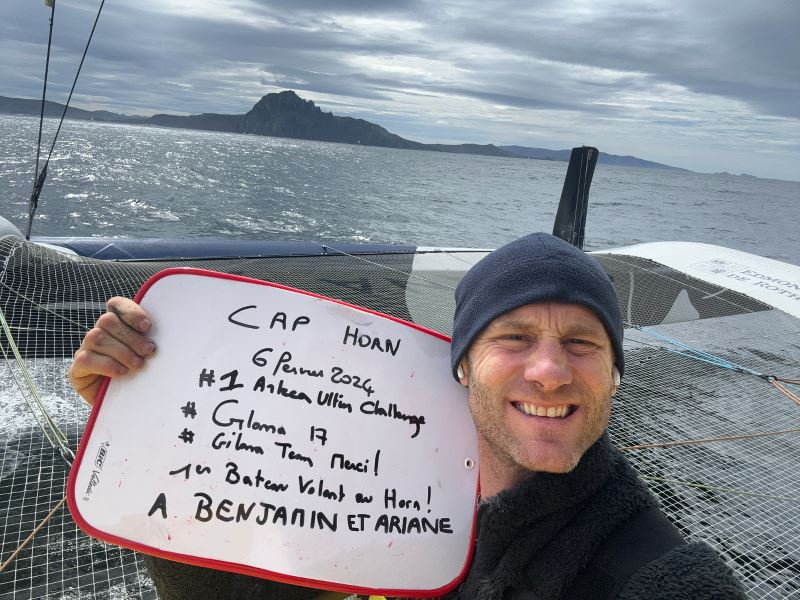 CAP HORN
2024
#1 Arkea Ultim Challenge
# Gitana 17
# Gitana Team Merci!
1er Bateau Volant au Horn!
A BENJAMIN ET ARIANE
BIC Velleda
EDMOND
DE ROTH